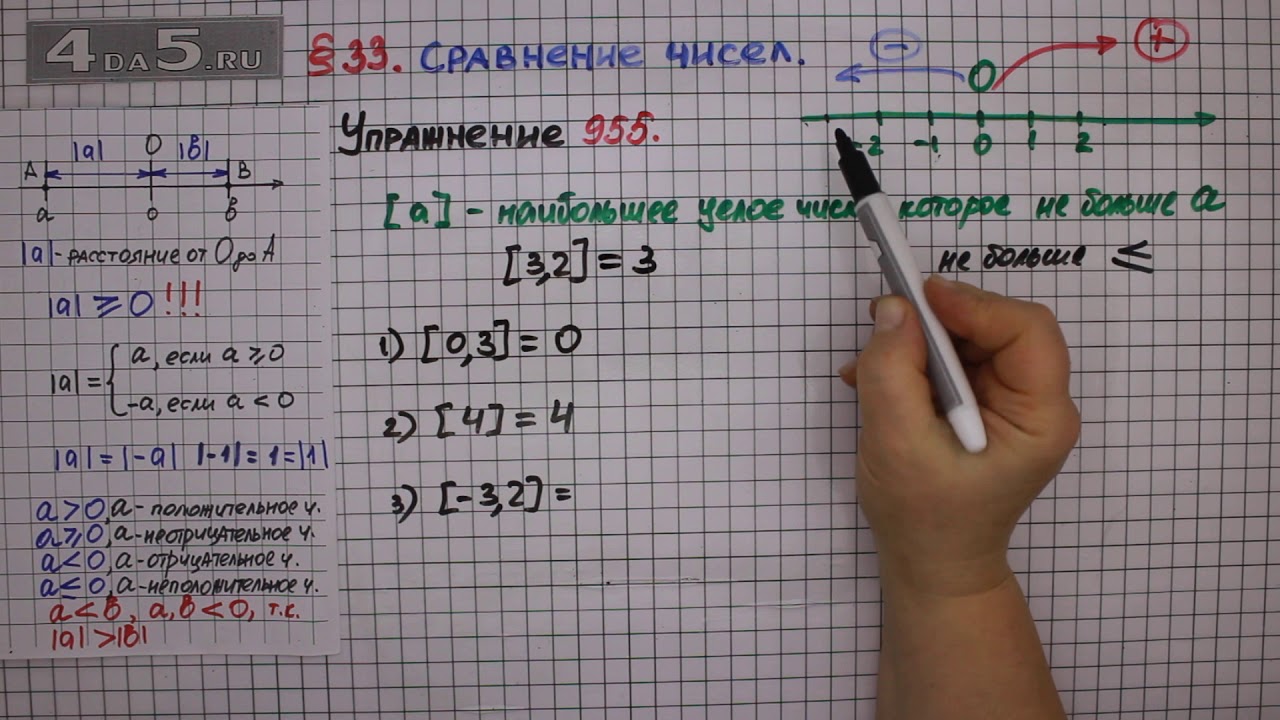 4DA5.RU
§33. Сравнение чисел.
− 0 +
-2 -1 0 1 2
Упражнение 955.
[a] - наибольшее целое которое не больше a
[3,2] = 3
не больше ≤
1) [0,3] = 0
2) [4] = 4
3) [-3,2] =
|a| 0 |в|
A B
a 0 в
|a| - расстояние от 0 до A
|a| ⩾ 0 !!!
|a| = { a, если a ⩾ 0
-a, если a < 0
|a| = |-a| |-1| = 1 = |1|
a > 0, a - положительное ч.
a ⩾ 0, a - неотрицательное ч.
a < 0, a - отрицательное ч.
a ≤ 0, a - неположительное ч.
a < в, a, в < 0, т.к.
|a| > |в|